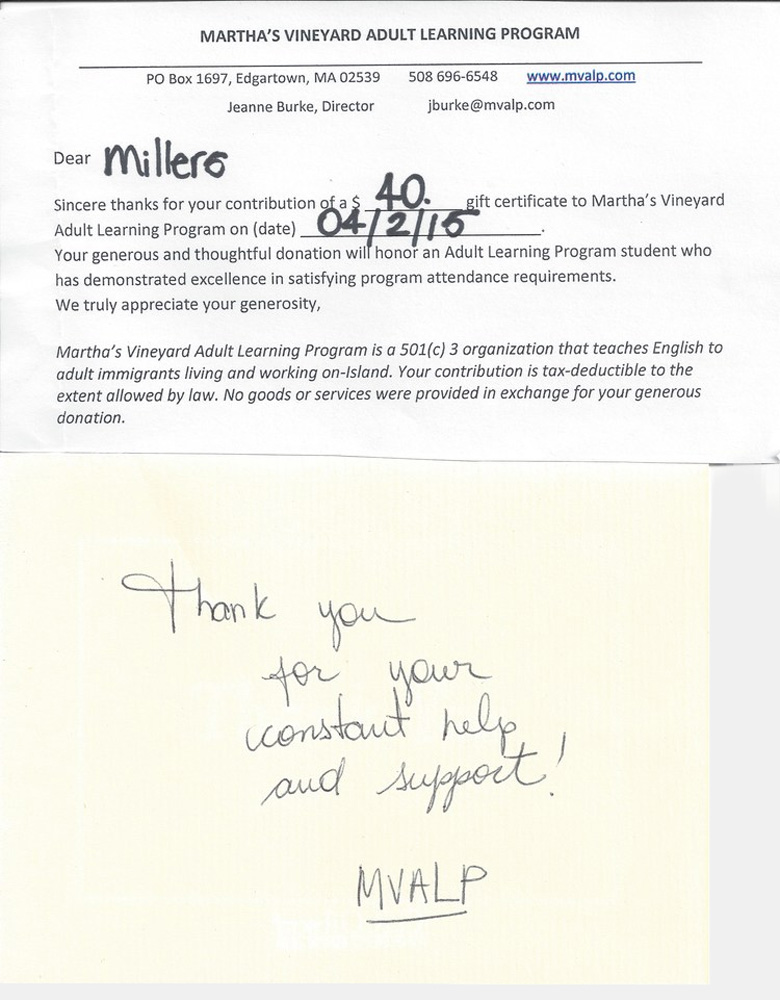 MARTHA'S VINEYARD ADULT LEARNING PROGRAM
PO Box 1697, Edgartown, MA 02539 508 696-6548 www.mvalp.com
Jeanne Burke, Director jburke@mvalp.com
Dear Millers
Sincere thanks for your contribution of a $ 40. gift certificate to Martha's Vineyard
Adult Learning Program on (date) 04/2/15.
Your generous and thoughtful donation will honor an Adult Learning Program student who
has demonstrated excellence in satisfying program attendance requirements.
We truly appreciate your generosity,
Martha's Vineyard Adult Learning Program is a 501(c) 3 organization that teaches English to
adult immigrants living and working on-Island. Your contribution is tax-deductible to the
extent allowed by law. No goods or services were provided in exchange for your generous
donation.
Thank you
for your
constant help
and support!
MVALP